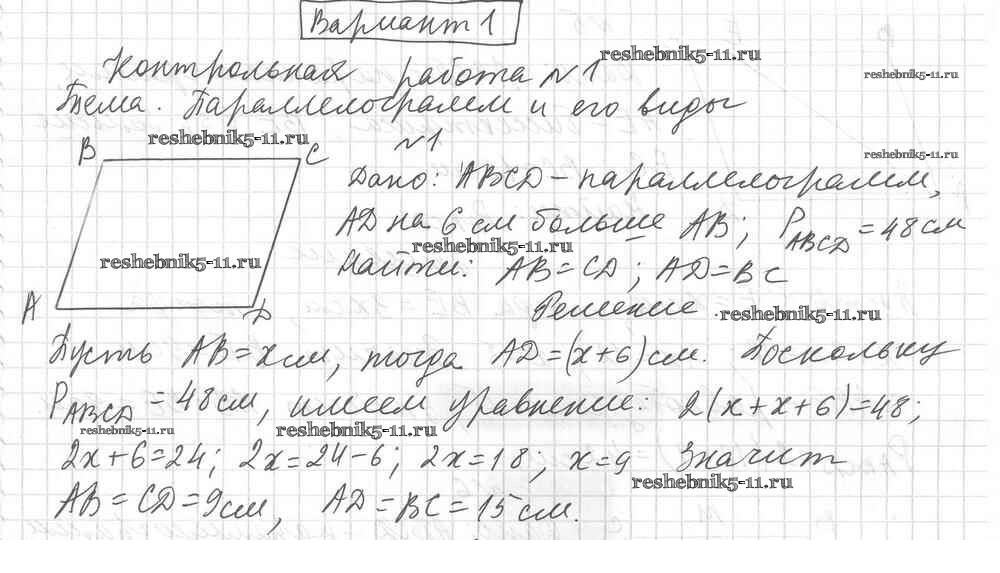 Вариант 1
reshebnik5-11.ru
Контрольная работа №1
reshebnik5-11.ru
Тема. Параллелограмм и его виды
reshebnik5-11.ru
№1
B C
reshebnik5-11.ru
Дано: ABCD – параллелограмм,
AD на 6 см больше AB; P ABCD = 48 см
reshebnik5-11.ru
reshebnik5-11.ru
Найти: AB = CD; AD = BC
A D
Решение
reshebnik5-11.ru
Пусть AB = x см, тогда AD = (x+6) см. Поскольку
P ABCD = 48 см, имеем уравнение: 2(x+x+6)=48;
reshebnik5-11.ru
reshebnik5-11.ru
2x+6=24; 2x=24-6; 2x=18; x=9 Значит
reshebnik5-11.ru
AB = CD = 9 см, AD = BC = 15 см.